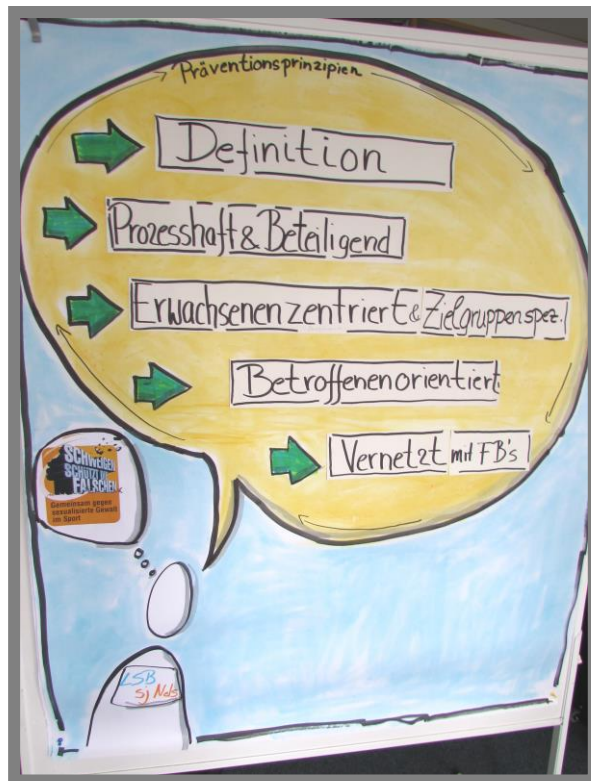 Präventionsprinzipien
Definition
Prozesshaft & Beteiligend
Erwachsenenzentriert & Zielgruppenspez.
Betroffenenorientiert
Vernetzt mit FB's
SCHWEIGEN
SCHÜTZT DIE
FALSCHEN
Gemeinsam gegen
sexualisierte Gewalt
im Sport
LSB
sj Nds